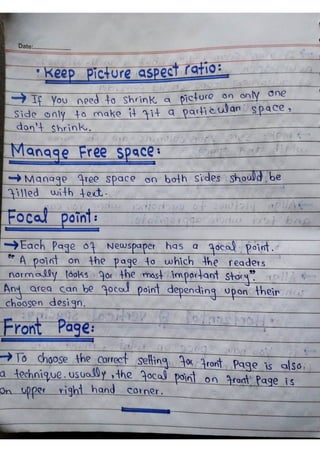 Date:
• Keep picture aspect ratio:
→ If you need to shrink a picture on only one
side only to make it fit a particular space,
don't shrink.
Manage Free space:
→ Manage free space on both sides should be
filled with text.
Focal point:
→ Each Page of Newspaper has a focal point.
" A point on the page to which the readers
normally looks for the most important story".
Any area can be focal point depending upon their
choosen design.
Front Page:
→ To choose the correct setting for front page is also
a technique. usually, the focal point on front Page is
on upper right hand corner.